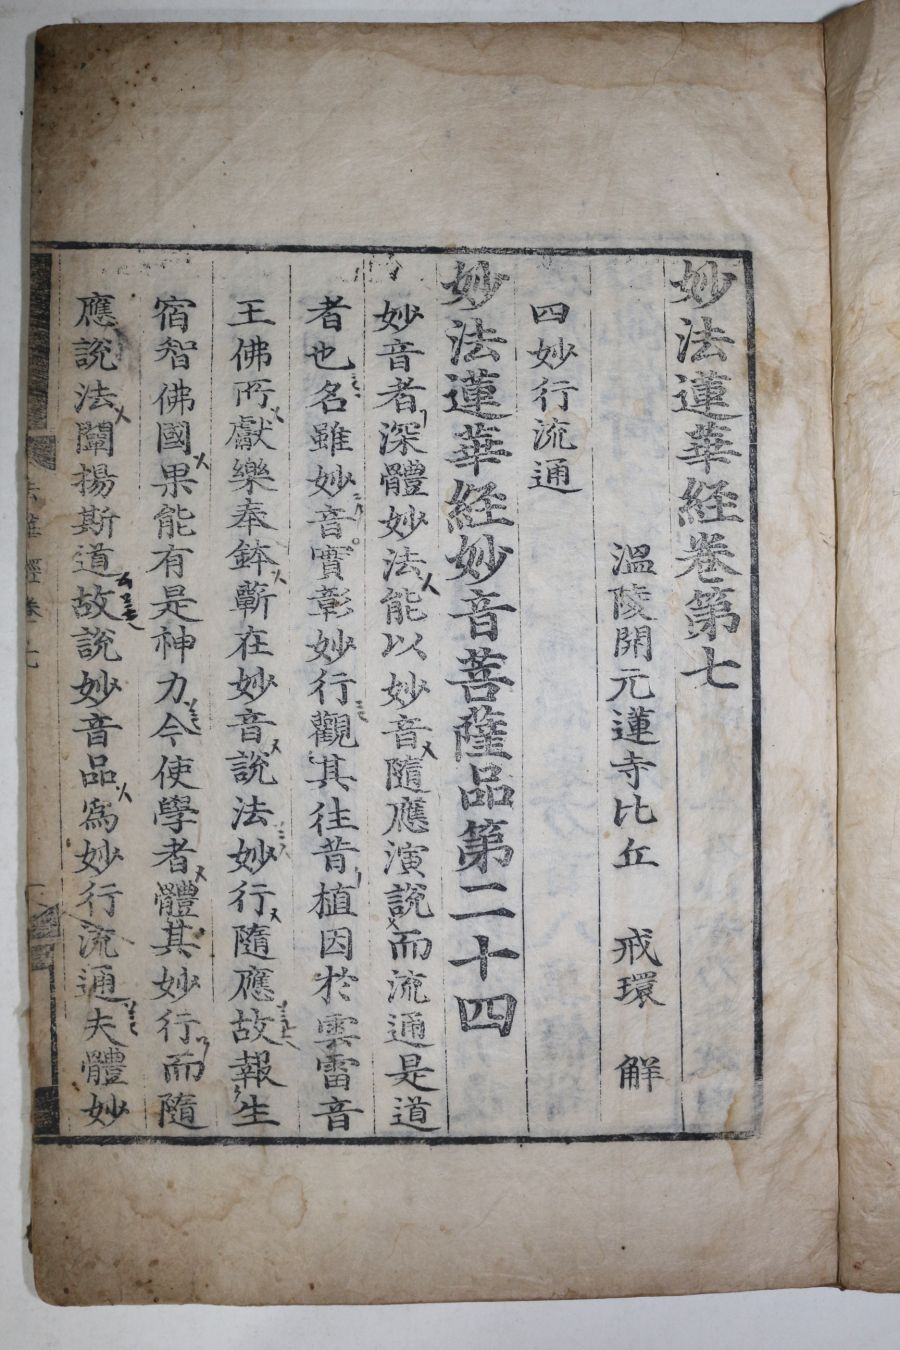 妙法蓮華経卷第七
溫陵開元蓮寺比丘 戒環 解
四妙行流通
妙法蓮華経妙音菩薩品第二十四
妙音者深體妙法能以妙音隨應演說而流通是道
者也名雖妙音實彰妙行觀其往昔植因於雲雷音
王佛所獻樂奉鉢蘄在妙音說法妙行隨應故報生
宿智佛國果能有是神力今使學者體其妙行而隨
應說法闡揚斯道故說妙音品爲妙行流通夫體妙
法華經卷七